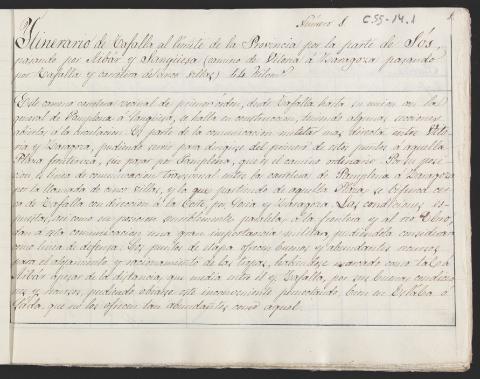 Número 8 C.55-14.1
Itinerario de Tafalla al límite de la Provincia por la parte de Sós,
pasando por Aibar y Sangüesa (camino de Vitoria á Zaragoza pasando
por Tafalla y carretera de cinco villas)
Este camino carretera vecinal de primer orden, desde Tafalla hasta su union con la
general de Pamplona á Sangüesa, se halla en construccion, teniendo algunas secciones
abiertas á la circulacion. Es parte de la comunicacion militar mas directa entre Vito-
ria y Zaragoza, pudiendo servir para dirigirse del primero de estos puntos á aquella
Plaza fronteriza, sin pasar por Pamplona, que es el camino ordinario. Por su posi-
cion es linea de comunicacion transversal entre la carretera de Pamplona á Zaragoza
por la llamada de cinco villas, y la que partiendo de aquella Plaza se bifurca cer-
ca de Tafalla con direccion á la Corte, por Soria y Zaragoza. Las condiciones es-
puestas, asi como su posicion sensiblemente paralela á la frontera y al rio Ebro,
dan á esta comunicacion una gran importancia militar, pudiendola considerar
como linea de defensa. Los puntos de etapa ofrecen buenos y abundantes recursos
para el alojamiento y racionamiento de las tropas, habiendose marcado como tal á
Aibar apesar de la distancia que media entre él y Tafalla, por sus buenas condicio-
nes y recursos, pudiendo obviarse este inconveniente pernoctando, bien en
que no los ofrecen tan abundantes como aquel.